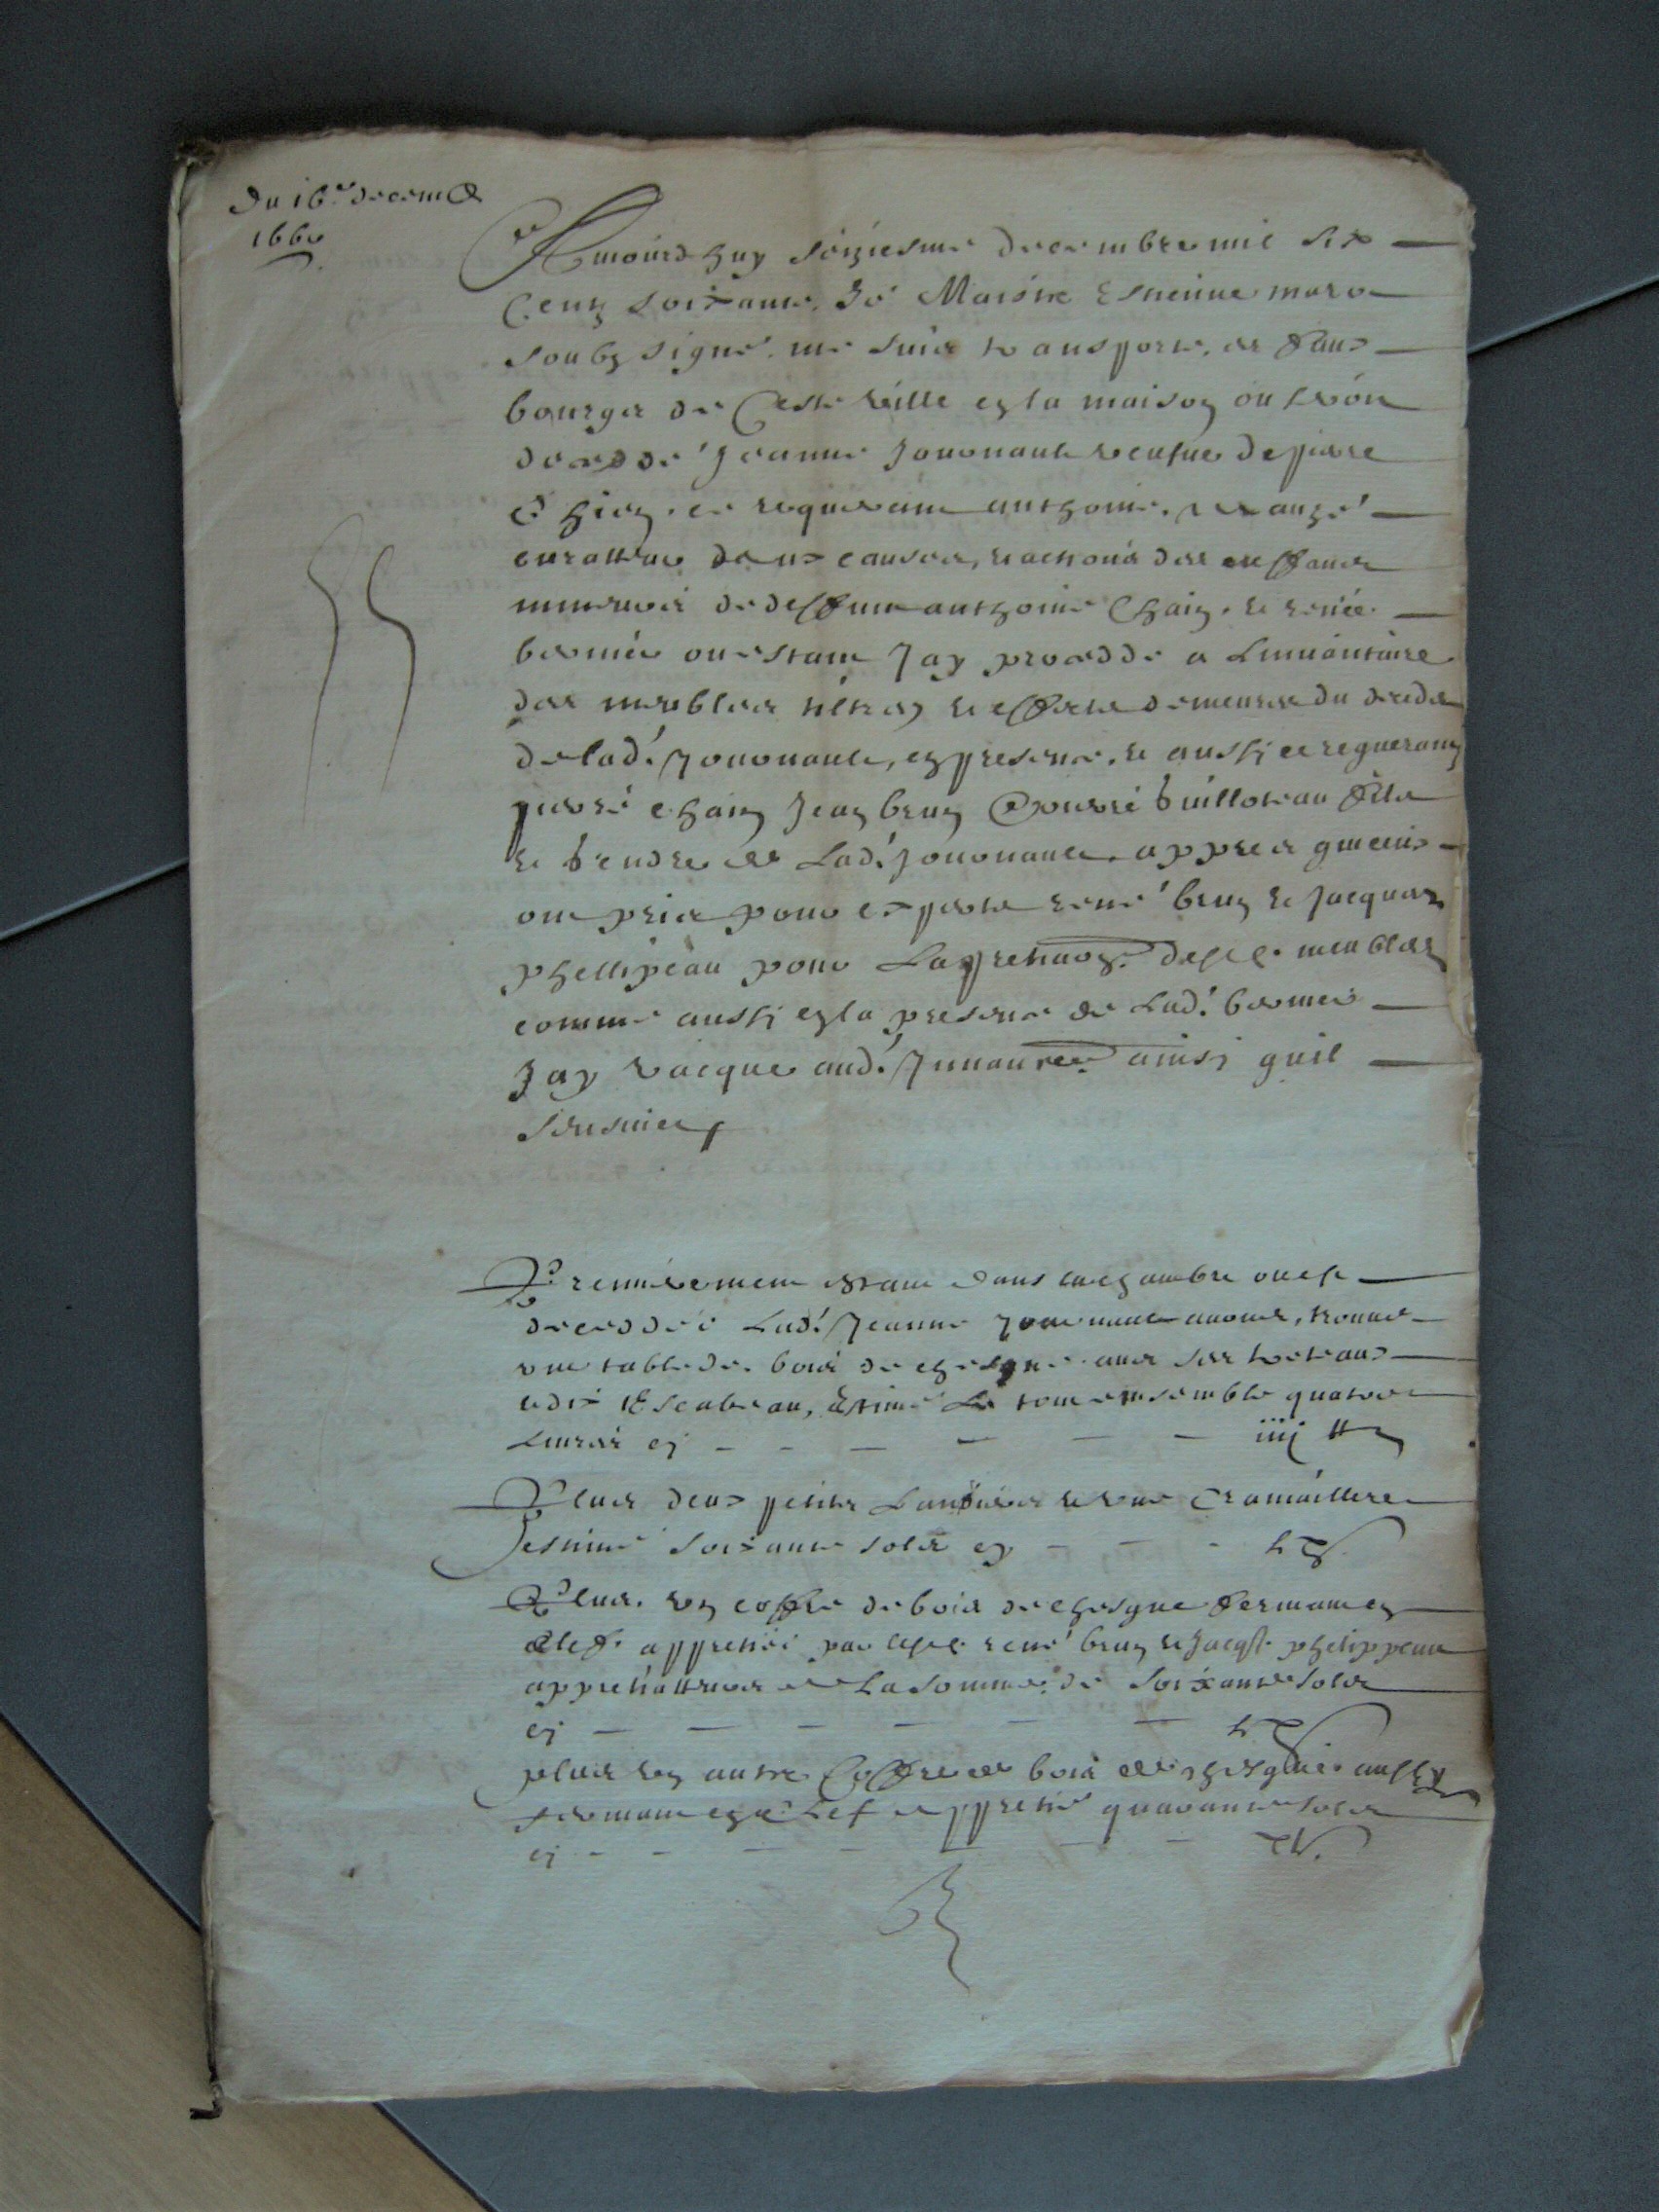 Du 16e decemb
1660
Aujourdhuy seiziesme decembre mil six
Centz soixante Je Maistre Estienne
soubz signé me suis transporté es faux
bourgs de Ceste ville en la maison ou
deceddé Jeanne Jouonault veufue de pierre
ce requerant anthoine
curatteur aux causes, et actions des enffans
mineurs de deffunt anthoine Chain et renée
bernier ou estant Jay proceddé a Linuantaire
des meubles tiltres et effects demeurés du deceds
de lad. Jouonault, en presence et aussi ce requerans
pierre chain Jean brun pierre Guilloteau filz
et Gendre de Lad. Jouonault apres quiceux
ont pris pour expertz rené brun et Jacques
phellipeau pour Lapretiaon desd. meubles
comme aussi en la presence de Lad. bernier
Jay vacque aud. Inuantre ainsi quil
sensuict
Premierement estant dans la chambre ou est
deceddée Lad. Jeanne Jouonault auons, trouué
vne table de bois de chesgne auec ses treteaux
Escabeau, Estimé Le tout ensemble quatre
Liures cy - - - - - - iiij tt
Plus deux petits Landiers et vne Cramaillere
estimé soixante solz cy - - - lx s.
Plus vn coffre de bois de chesgne fermant a
clef apretié par lesd. rené brun et Jacqs phelippeau
appretiatteurs a La somme de soixante solz
cy - - - - - - lx s
plus vn autre Coffre de bois de chesgne aussy
fermant a clef appretié quarante solz
cy - - - - - - xl s.